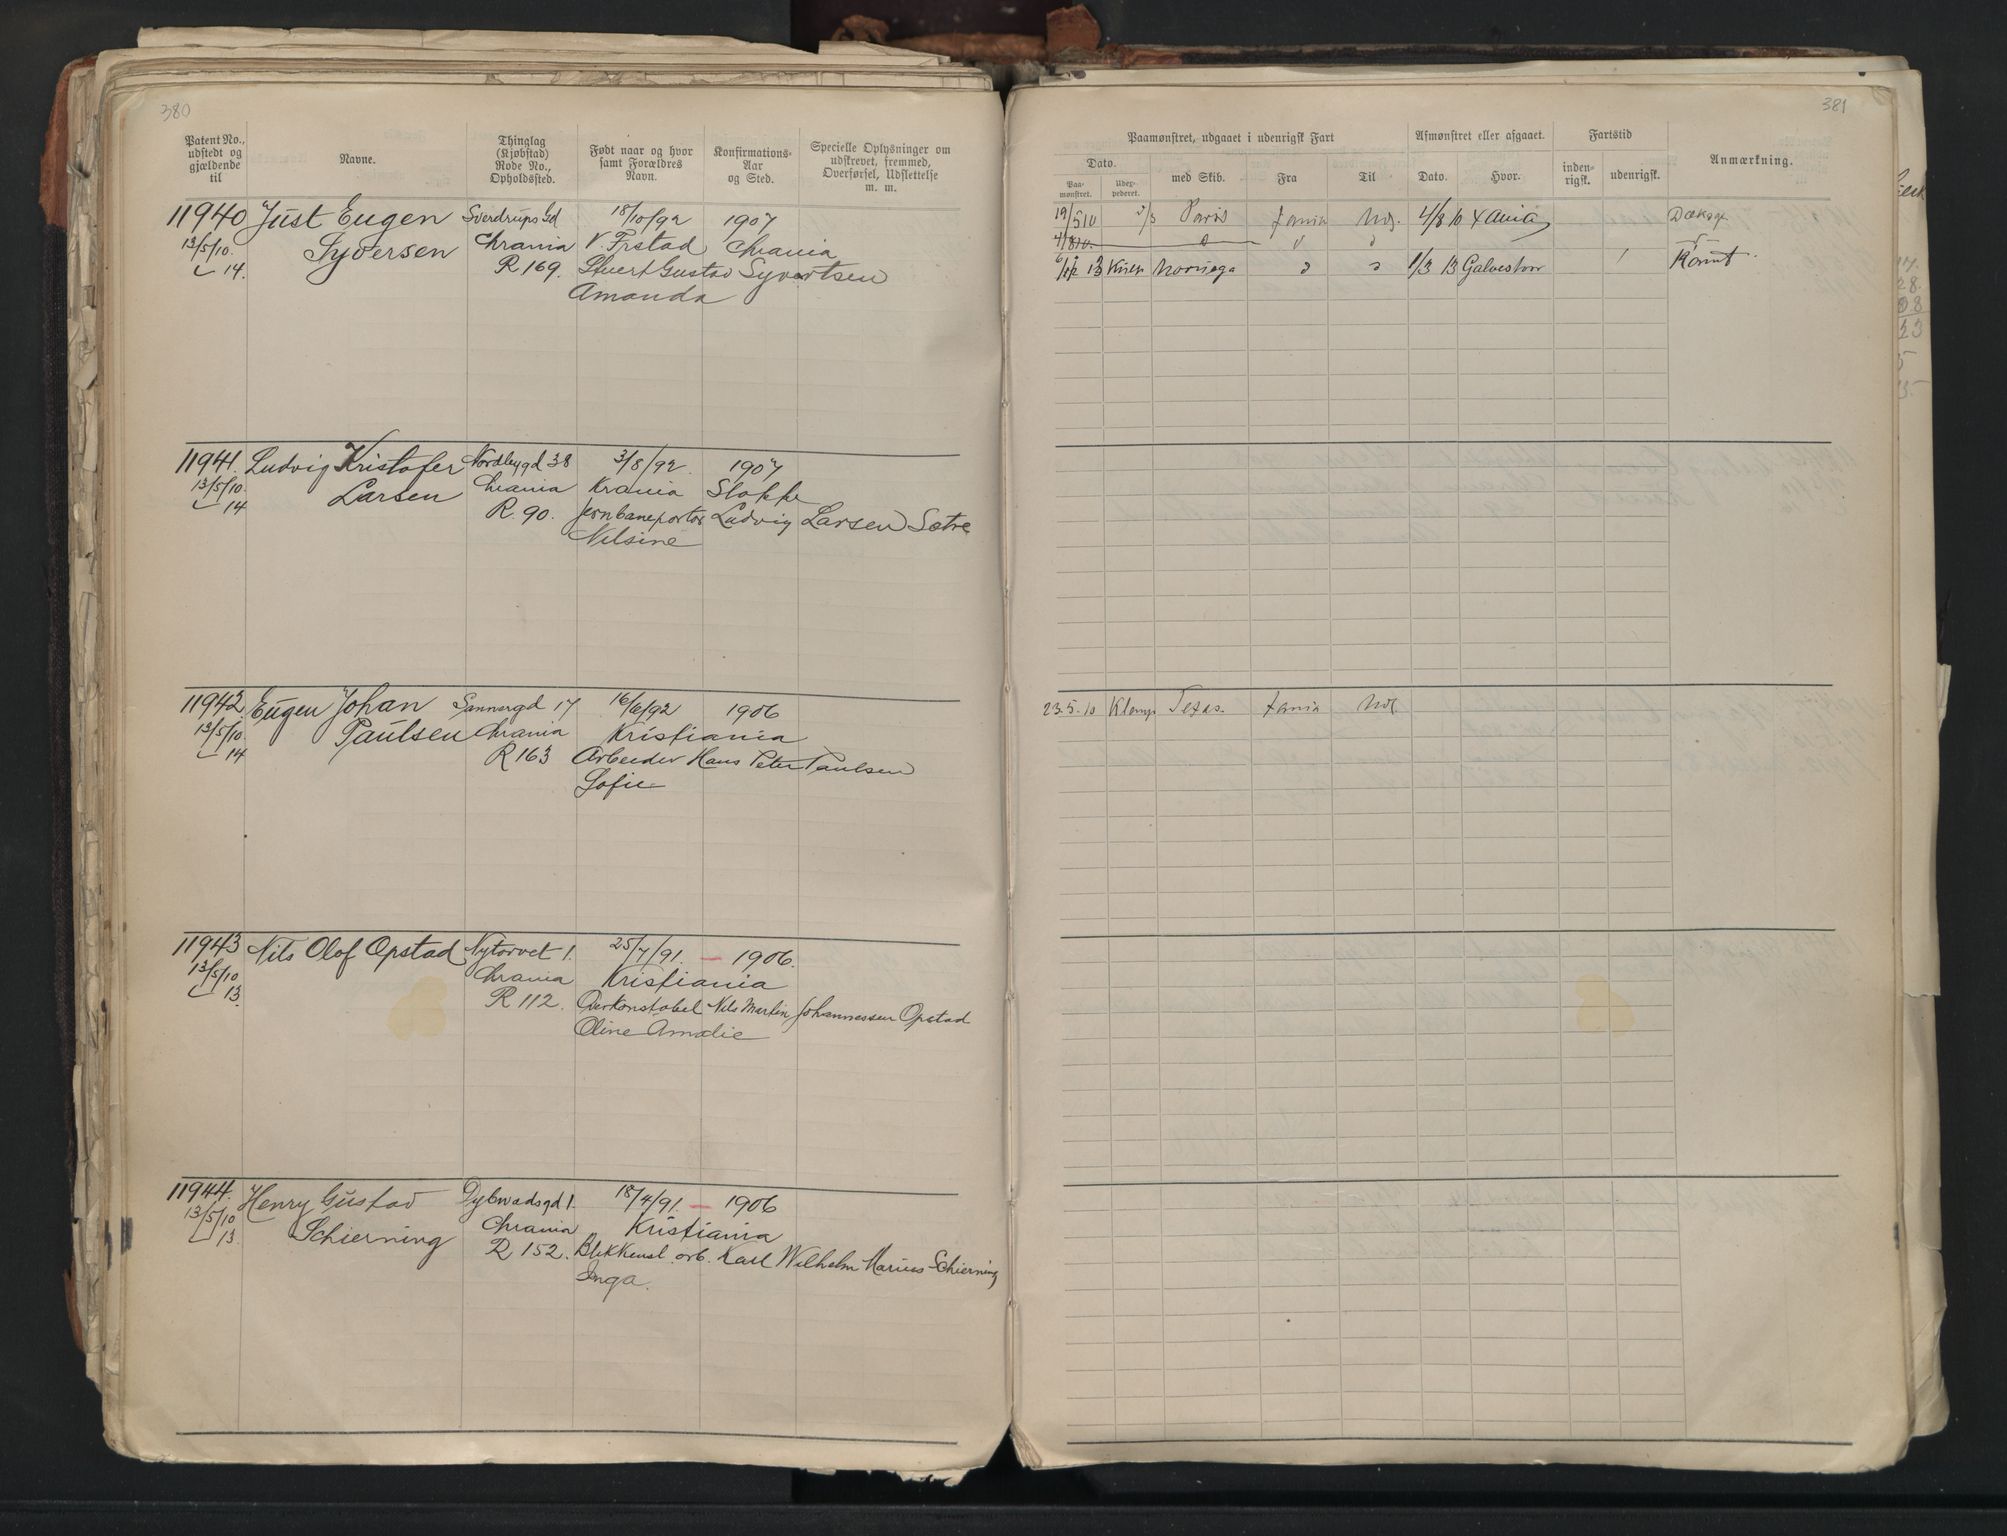 380
Patent No., udstedt og gjældende til
Navne.
Thinglag (Kjøbstad) Rode No., Opholdssted.
Født naar og hvor samt Forældres Navn.
Konfirmations-Aar og Sted.
Specielle Oplysninger om udskrevet, fremmed, Overførsel, Udslettelse m. m.
11940 Just Eugen Sverdrups Gd 18/10/92 1907
13/5/10. Syversen Chrania V. Frstad Chrania
14. R 169. Gustav Syvertsen
Amanda
11941. Ludvig Kristofer Nordbygd 38 3/8/92 1907
13/5/10. Larsen Chrania Krania
14 R. 90. Jernbaneportør Ludvig Larsen Sætre
Nilsine
11942. Eugen Johan Sannergd 17 16/6/92 1906
13/5/10. Paulsen Chrania Kristiania
14 R 163 Arbeider Hans Peter Paulsen
Sofie
11943 Nils Olof Opstad Nytorvet 1. 25/7/91. — 1906.
13/5/10 Chrania Kristiania
13. R 112. Overkonstabel Nils Martin Johannessen Opstad
Oline Amalie
11944. Henry Gustav Dybwadsgd 1. 18/4/91. — 1906
13/5/10 Schierning Chrania Kristiania
13. R 152. Blikkensl. arb. Karl Wilhelm Marius Schierning
Inga.
381
Paamønstret, udgaaet i udenrigsk Fart
Afmønstret eller afgaaet.
Fartstid
Anmærkning.
Dato.
Paa-mønstret.
Udex-pederet.
med Skib.
Fra
Til
Dato.
Hvor.
inden-rigsk.
udenrigsk.
19/5 10 Paris Xania 4/8 10 Xania
13 Noruega 1/3 13 Galveston
23.5.10 Texas. Xania